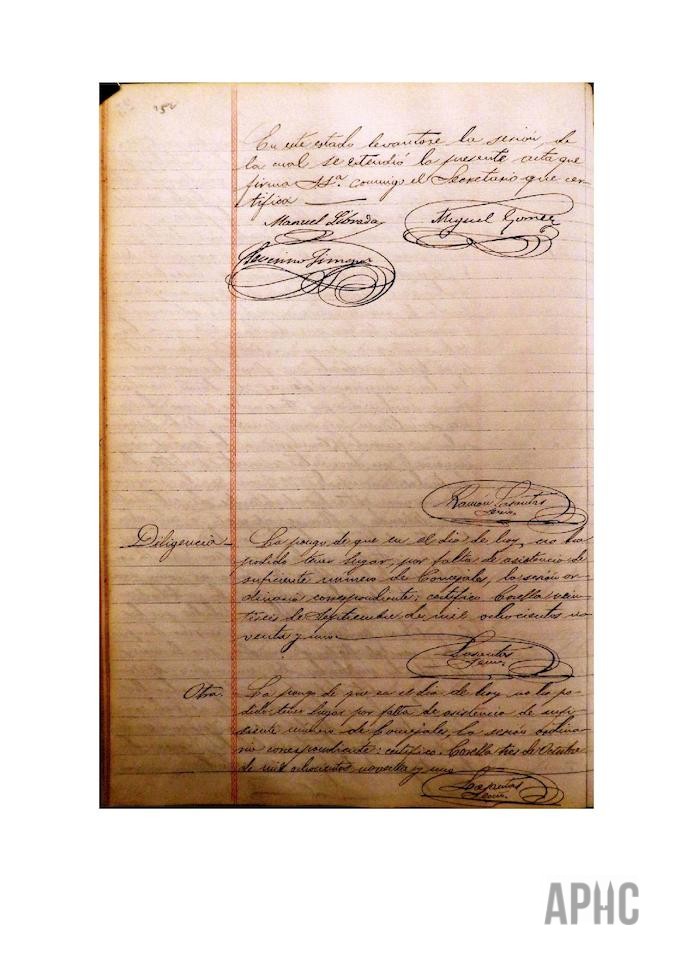 152
En este estado levantose la sesión, de
la cual se estendió la presente acta que
firma S.Sª. conmigo el Secretario que cer-
tifica
Manuel Librada
Miguel Gomez
Jimenez
Ramón Lasantas
Secrio.
Diligencia-
La pongo de que en el día de hoy, no ha
podido tener lugar, por falta de asistencia de
suficiente número de Concejales, la sesión or-
dinaria correspondiente: certifico Corella vein-
tiseis de Septiembre de mil ochocientos no-
venta y uno
Lasantas
Secrio.
Otra.
La pongo de que en el día de hoy, no ha po-
dido tener lugar por falta de asistencia de sufi-
ciente número de Concejales, la sesión ordina-
ria correspondiente: certifico. Corella tres de Octubre
de mil ochocientos noventa y uno
Lasantas
Secrio.
APHC